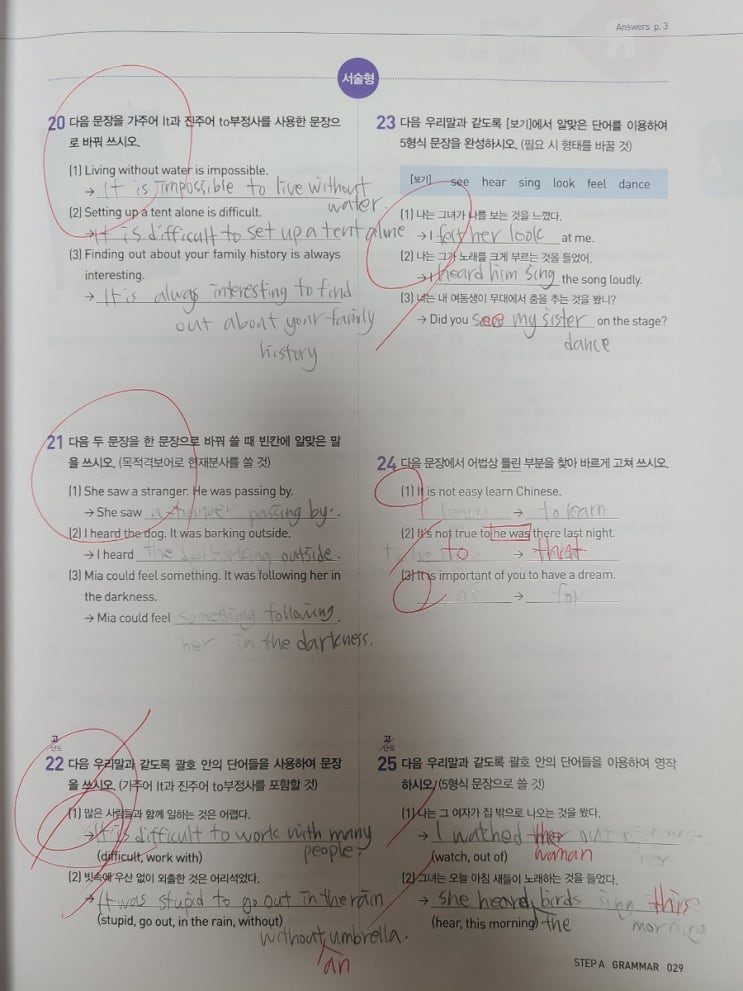 Answers p. 3
서술형
20 다음 문장을 가주어 It과 진주어 to부정사를 사용한 문장으
로 바꿔 쓰시오.
(1) Living without water is impossible.
→ It is impossible to live without
water.
(2) Setting up a tent alone is difficult.
→ It is difficult to set up a tent alone
(3) Finding out about your family history is always
interesting.
→ It is always interesting to find
out about your family
history
21 다음 두 문장을 한 문장으로 바꿔 쓸 때 빈칸에 알맞은 말
을 쓰시오. (목적격보어로 현재분사를 쓸 것)
(1) She saw a stranger. He was passing by.
→ She saw a stranger passing by.
(2) I heard the dog. It was barking outside.
→ I heard the dog barking outside.
(3) Mia could feel something. It was following her in
the darkness.
→ Mia could feel something following
her in the darkness.
고난도
22 다음 우리말과 같도록 괄호 안의 단어들을 사용하여 문장
을 쓰시오. (가주어 It과 진주어 to부정사를 포함할 것)
(1) 많은 사람들과 함께 일하는 것은 어렵다.
→ It is difficult to work with many
people.
(difficult, work with)
(2) 빗속에 우산 없이 외출한 것은 어리석었다.
→ It was stupid to go out in the rain
(stupid, go out, in the rain, without)
without umbrella.
an
23 다음 우리말과 같도록 [보기]에서 알맞은 단어를 이용하여
5형식 문장을 완성하시오. (필요 시 형태를 바꿀 것)
[보기] see hear sing look feel dance
(1) 나는 그녀가 나를 보는 것을 느꼈다.
→ I felt her look at me.
(2) 나는 그가 노래를 크게 부르는 것을 들었어.
→ I heard him sing the song loudly.
(3) 너는 내 여동생이 무대에서 춤을 추는 것을 봤니?
→ Did you see my sister on the stage?
dance
24 다음 문장에서 어법상 틀린 부분을 찾아 바르게 고쳐 쓰시오.
(1) It is not easy learn Chinese.
learn → to learn
(2) It's not true to he was there last night.
to → that
(3) It is important of you to have a dream.
of → for
고난도
25 다음 우리말과 같도록 괄호 안의 단어들을 이용하여 영작
하시오. (5형식 문장으로 쓸 것)
(1) 나는 그 여자가 집 밖으로 나오는 것을 봤다.
→ I watched her out
(watch, out of) woman her
(2) 그녀는 오늘 아침 새들이 노래하는 것을 들었다.
→ She heard birds sing this
(hear, this morning) the morning
STEP A GRAMMAR 029